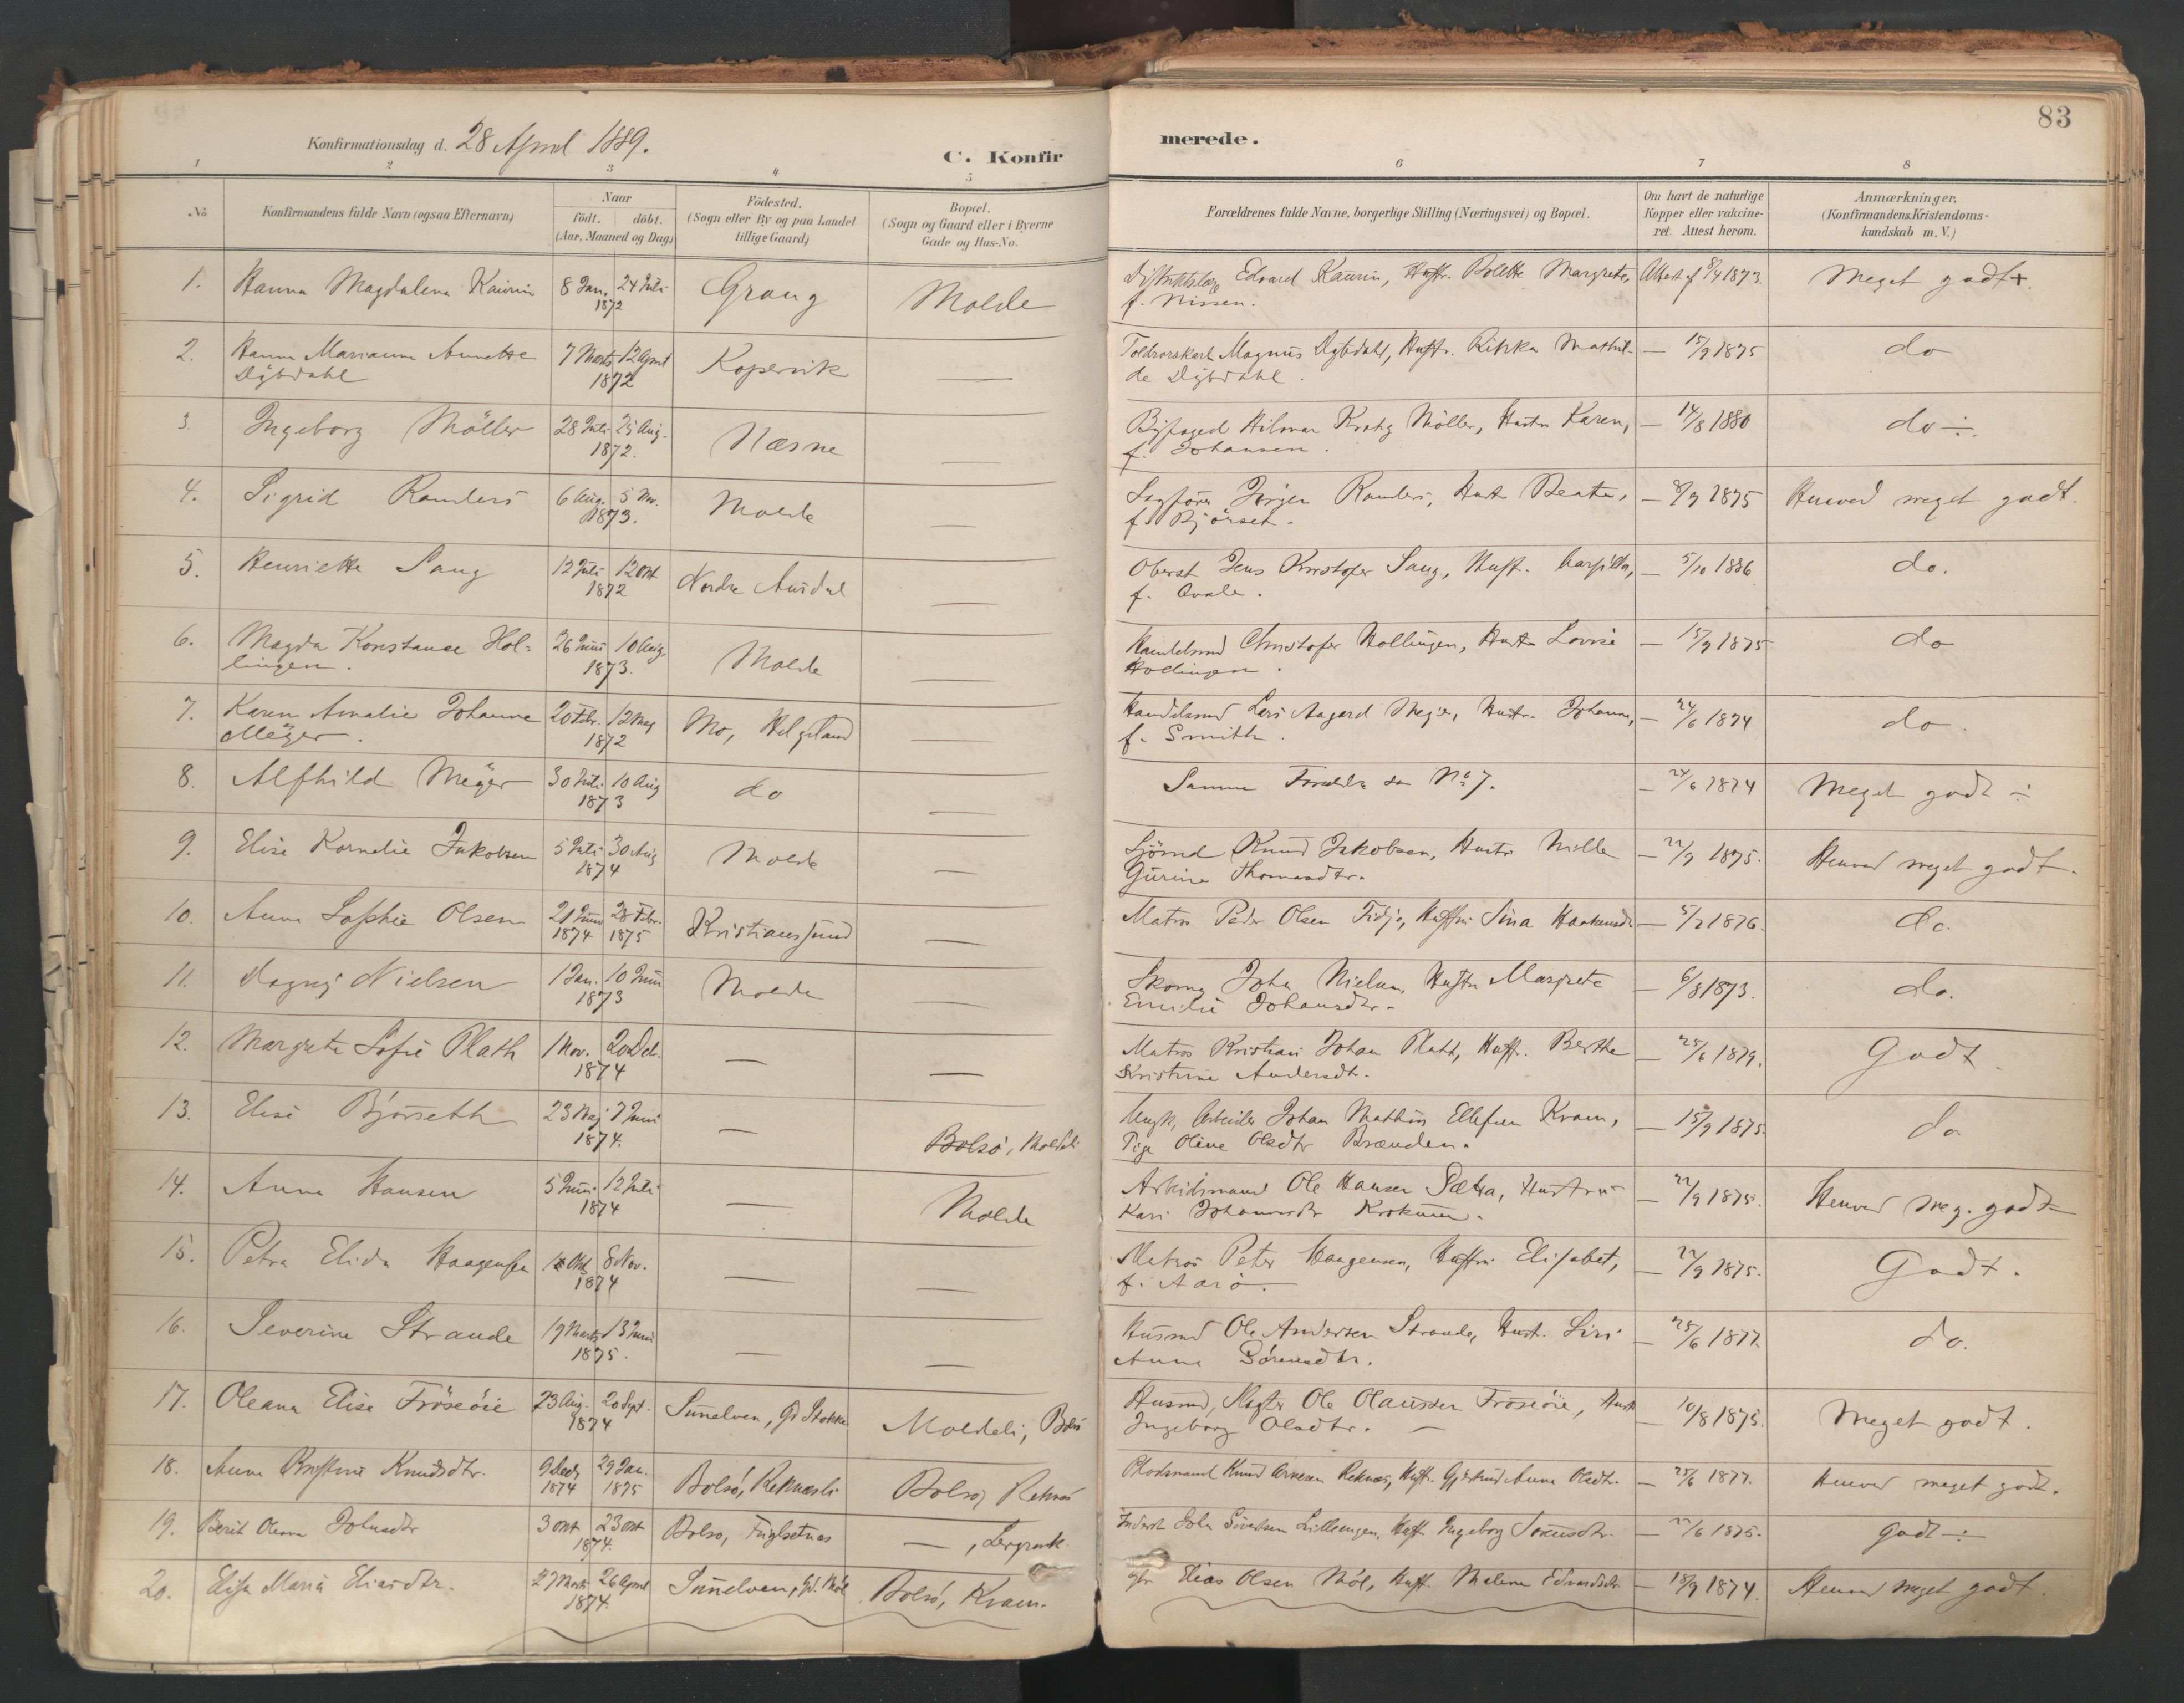 83
Konfirmationsdag d. 28 April 1889.
C. Konfirmerede.
1 2 3 4 5 6 7 8
No
Konfirmandens fulde Navn (ogsaa Efternavn)
Naar
födt. döbt.
(Aar, Maaned og Dag)
Födested.
(Sogn eller By og paa Landet
tillige Gaard)
Bopæl.
(Sogn og Gaard eller i Byerne
Gade og Hus-No.
Forældrenes fulde Navne, borgerlige Stilling (Næringsvei) og Bopæl.
Om havt de naturlige
Kopper eller vakcine-
ret. Attest herom.
Anmærkninger.
(Konfirmandens Kristendoms-
kundskab m. V.)
1. Hanna Magdalena Kaurin 8 Jan. 24 Juli 1872 Grong Molde Edvard Kaurin, Hustr. Bolette Margrete, f. Nissen. Attest af 8/4 1873. Meget godt +.
2. Hanna Marianne Annette Dybdahl 7 Marts 12 April 1872 Kopervik — Magnus Dybdahl, Hustr. Rikka Mathilde Dybdahl. — 15/9 1875 do
3. Ingeborg Möller 28 Juli 25 Aug. 1872. Næsne — Byfoged Hilmar Möller, Hustru Karen, f. Johansen. — 14/8 1880 do ÷.
4. Sigrid Ramlers 6 Aug. 5 Nov. 1873. Molde — Sagförer Jörgen Ramlers, Hust. Beate, f. Björset. — 8/9 1875 Henved meget godt.
5. Henriette Sang 12 Juli 12 Okt 1872 Nordre Aurdal — Oberst Jens Kristofer Sang, Hust. f. Qvale. — 5/10 1886 do.
6. Magda Konstance Hollingen. 26 Juni 10 Aug. 1873. Molde — Handelsmd Christofer Hollingen, Hustr. Lovise Hollingen. — 15/9 1875 do
7. Karen Amalie Johanne Meyer. 20 Febr. 12 Maj 1872 Mo, Helgeland — Handelsmd Lars Aagard Meyer, Hustr. Johanna, f. Smith. — 24/6 1874 do
8. Alfhild Meyer 30 Juli 10 Aug 1873 do — Samme Forældre som No 7. — 24/6 1874 Meget godt ÷
9. Elise Kornelie Jakobsen 5 Juli 30 Aug 1874 Molde — Sjömd Knud Jakobsen, Hustr. Nille Gurine Thomasdtr. — 22/9 1875. Henved meget godt.
10. Anna Sophie Olsen 21 Juni 1874 28 Febr. 1875 Kristianssund — Matros Peder Olsen, Hustru Sina — 5/7 1876. do.
11. Dagny Nielsen 1 Jan. 10 Juni 1873 Molde — Skomg John Nielsen, Hustr Margrete Emilie Johansdtr. — 6/8 1873. do.
12. Margrete Sofie Plath 1 Nov. 20 Dec. 1874 — — Matros Kristian Johan Platt, Hustr. Berthe Kristine Andersdtr. — 25/6 1879. Godt.
13. Elise Björseth 23 Maj 7 Juni 1874. — Bolsö, Moldeli Ungk. Arbeider Johan Mathias Ellefsen Kram, Pige Oline Olsdtr Brænden. — 15/9 1875. do
14. Anna Hansen 5 Juni 12 Juli 1874 — Molde Arbeidsmand Ole Hansen Sætra, Hustru Kari — 22/9 1875. Henved meg. godt
15. Petra Elida Haagensen Okt 8 Nov. 1874 — — Matros Peter Haagensen, Hustru Elisabet, f. Aarö. — 22/9 1875. Godt.
16. Severine Strande 19 Marts 13 Juni 1875. — — Husmd Ole Andersen Strande, Hust. Siri Anna Sörensdtr. — 25/6 1877. do.
17. Oleana Elise Fröseöie 23 Aug. 20 Sept. 1874 Sunelven, Gd. Stokke Moldeli, Bolsö Husmd, Ole Olaussen Fröseöie, Hust Ingeborg Olsdtr. — 10/8 1875. Meget godt.
18. Anna Kristine Knudsdtr. 9 Decb 1874 29 Jan. 1875 Bolsö, Reknæsli Bolsö, Reknæs Knud Arnesen Reknæs, Hustr. Gjertrud Anna Olsdtr. — 25/6 1877. Henved meget godt.
19. Berit Johnsdtr 3 Okt 23 Okt 1874. Bolsö, Fuglsetnæs — , Lergrovk. Inderst John Sivertsen Lilleengen, Hust Ingeborg — 22/6 1875. Godt ÷
20. Elisa Maria Eliasdtr. 27 Marts 26 April 1874. Sunelven, Gd. Möl Bolsö, Kram. Elias Olsen Möl, Hustr. Malena Edvardsdtr — 18/9 1874. Henved meget godt.